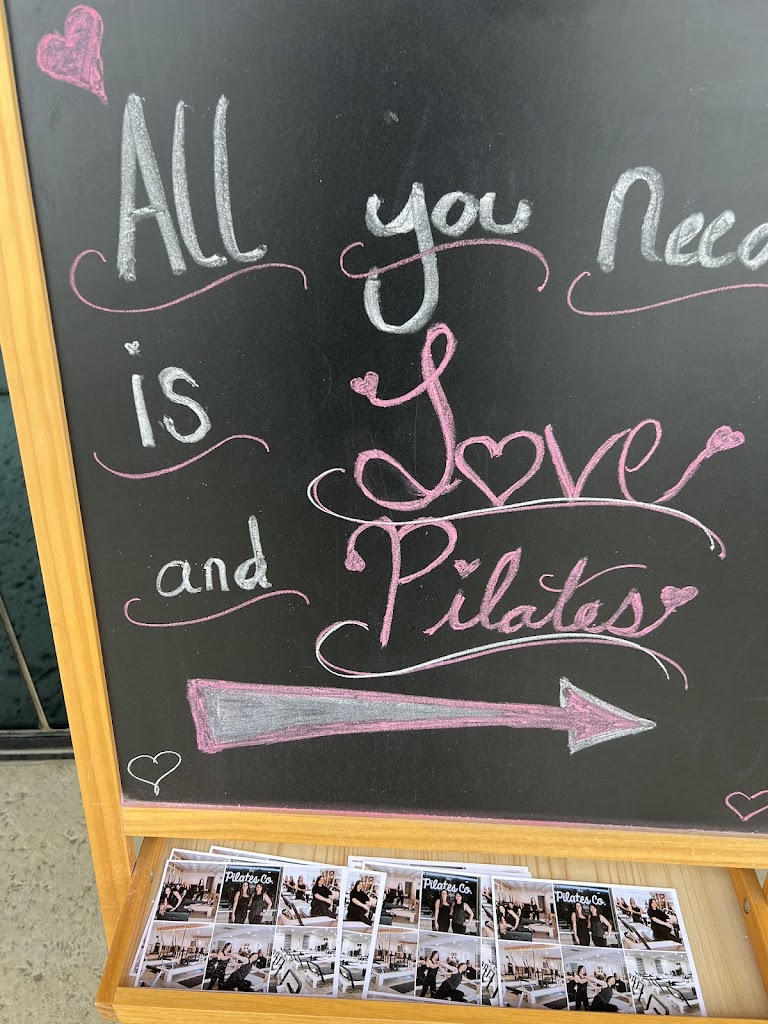 All you need
is Love
and Pilates
Pilates Co.
Pilates Co.
Pilates Co.